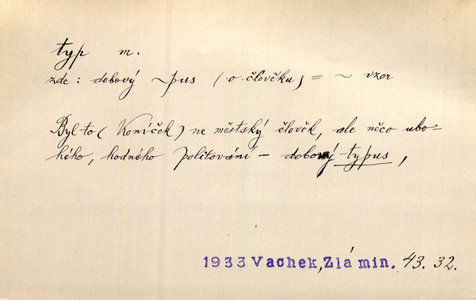 typ m.
zde: dobový ~pus (o člověku) = ~ vzor
Byl to (Koníček) ne městský člověk, ale něco ubo-
hého, hodného politování – dobový typus,
1933 Vachek, Zlá min. 43. 32.